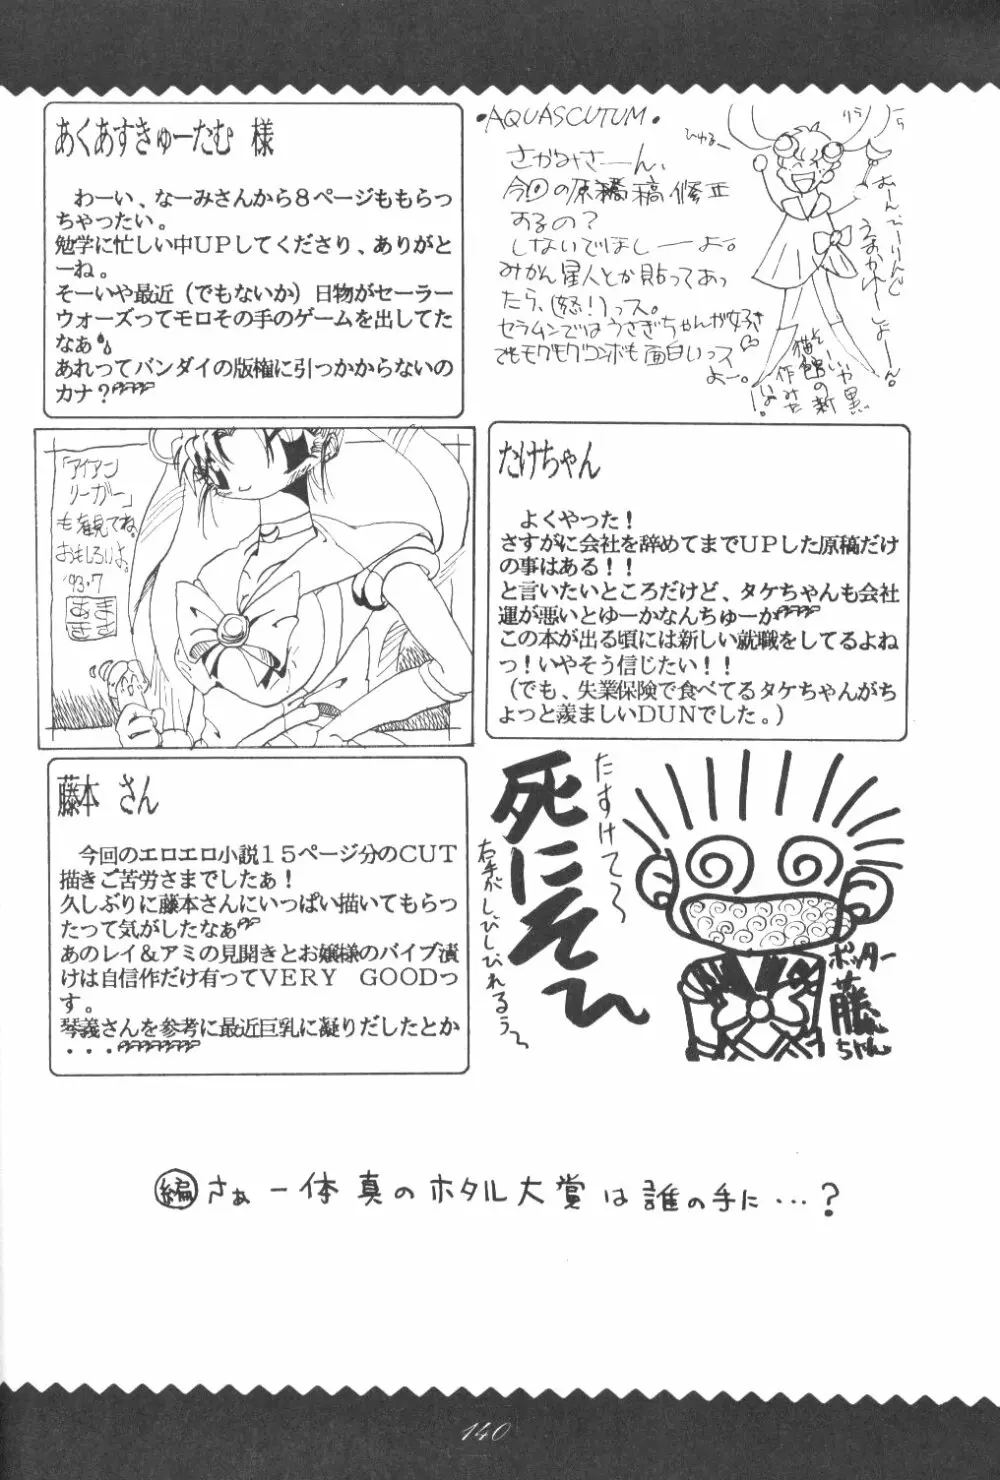 あくあすきゅーたむ 様
わーい、なーみさんから８ページももらっ
ちゃったい。
勉学に忙しい中ＵＰしてくださり、ありがと
ーね。
そーいや最近（でもないか）日物がセーラー
ウォーズってモロその手のゲームを出してた
なぁ
あれってバンダイの版権に引っかからないの
カナ？
・AQUASCUTUM・
さかみさーん、
今回の原稿稿修正
するの？
しないでほしーよ。
みかん星人とか貼ってあっ
たら、(怒!)っス。
セラムンではうさぎちゃんが好き
でもモグモグコンボも面白いっス
よー。
ひゅるー
そーいや黒
猫館の新
作みた
いな!
「アイアン
リーガー」
も観てね。
おもしろいよ。
'93・7
たけちゃん
よくやった！
さすがに会社を辞めてまでＵＰした原稿だけ
の事はある！！
と言いたいところだけど、タケちゃんも会社
運が悪いとゆーかなんちゅーか
この本が出る頃には新しい就職をしてるよね
っ！いやそう信じたい！！
（でも、失業保険で食べてるタケちゃんがち
ょっと羨ましいＤＵＮでした。）
藤本 さん
今回のエロエロ小説１５ページ分のＣＵＴ
描きご苦労さまでしたぁ！
久しぶりに藤本さんにいっぱい描いてもらっ
たって気がしたなぁ
あのレイ＆アミの見開きとお嬢様のバイブ漬
けは自信作だけ有ってＶＥＲＹ ＧＯＯＤっ
す。
琴義さんを参考に最近巨乳に凝りだしたとか
・・・
たすけて〜
死にそひ
右手がしびしびれるぅ〜
ポッター
藤
ちゃん
編 さぁ一体真のホタル大賞は誰の手に…？
140